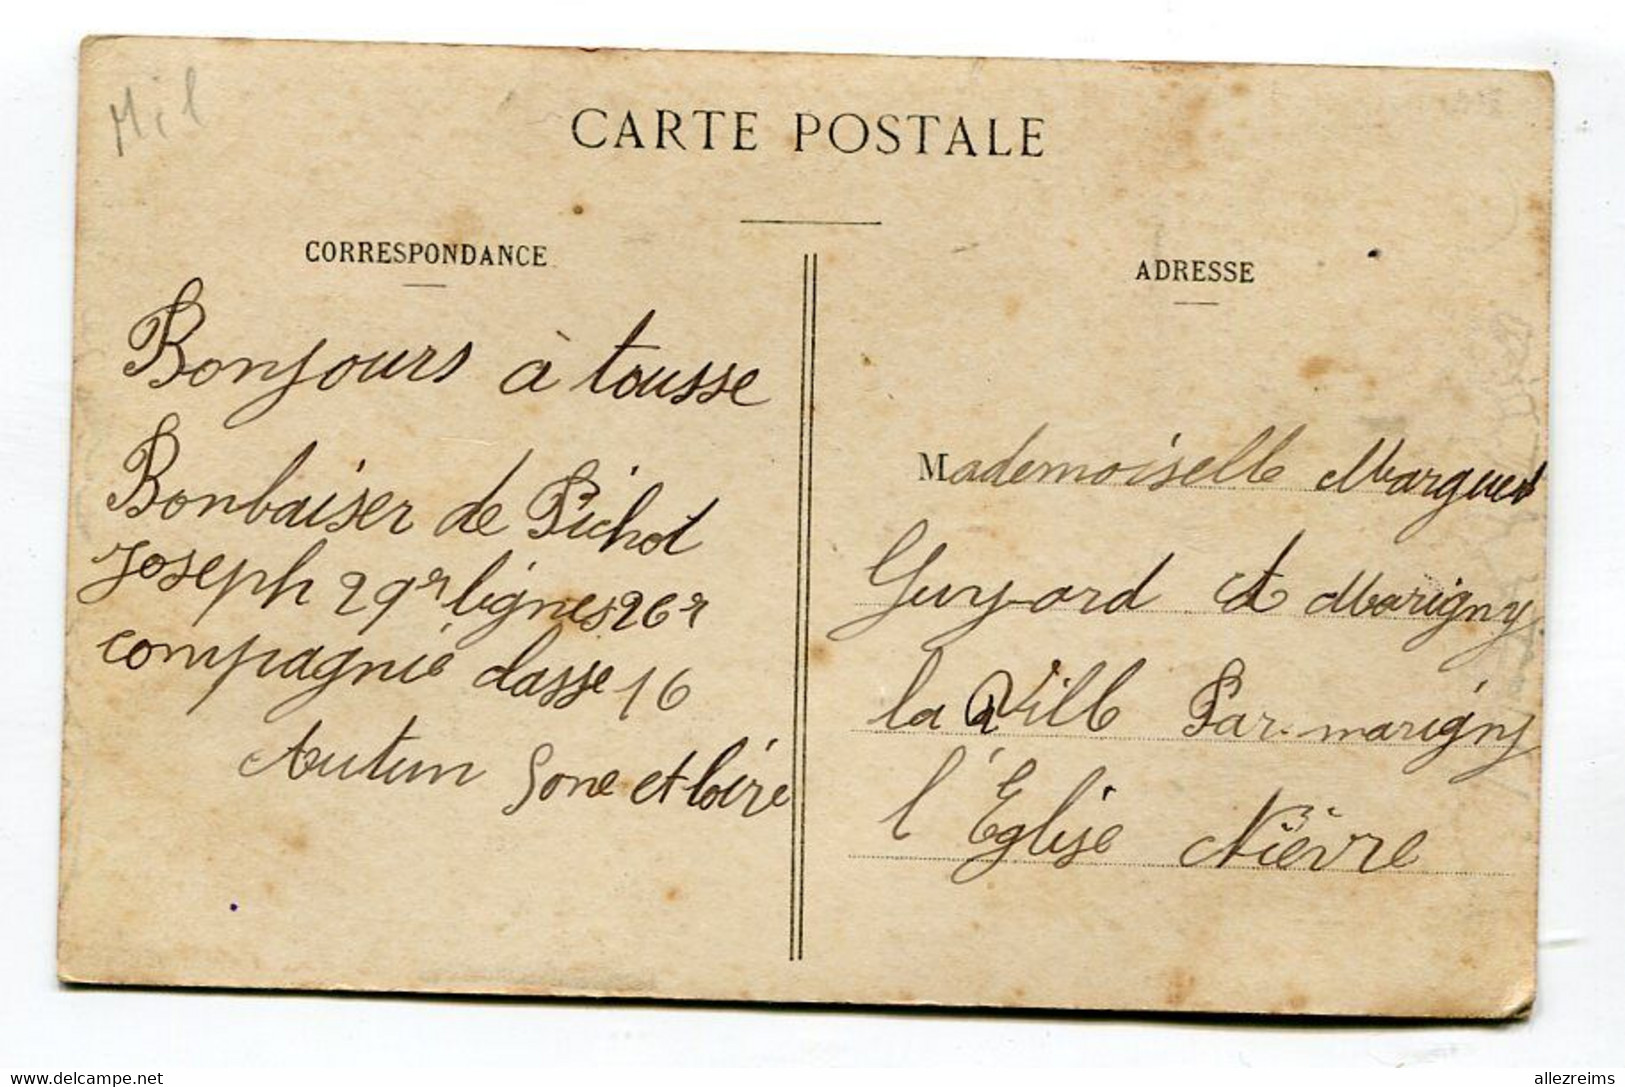 Mil
CARTE POSTALE
CORRESPONDANCE
Bonjours à tousse
Bonbaiser de Pichot
Joseph 29r lignes 26r
compagnie classe 16
Autun Sone et loire
ADRESSE
Mademoiselle Marguerit
Guyard à Marigny
la Ville Par marigny
l'Eglise Nièvre
delcampe.net
allezreims